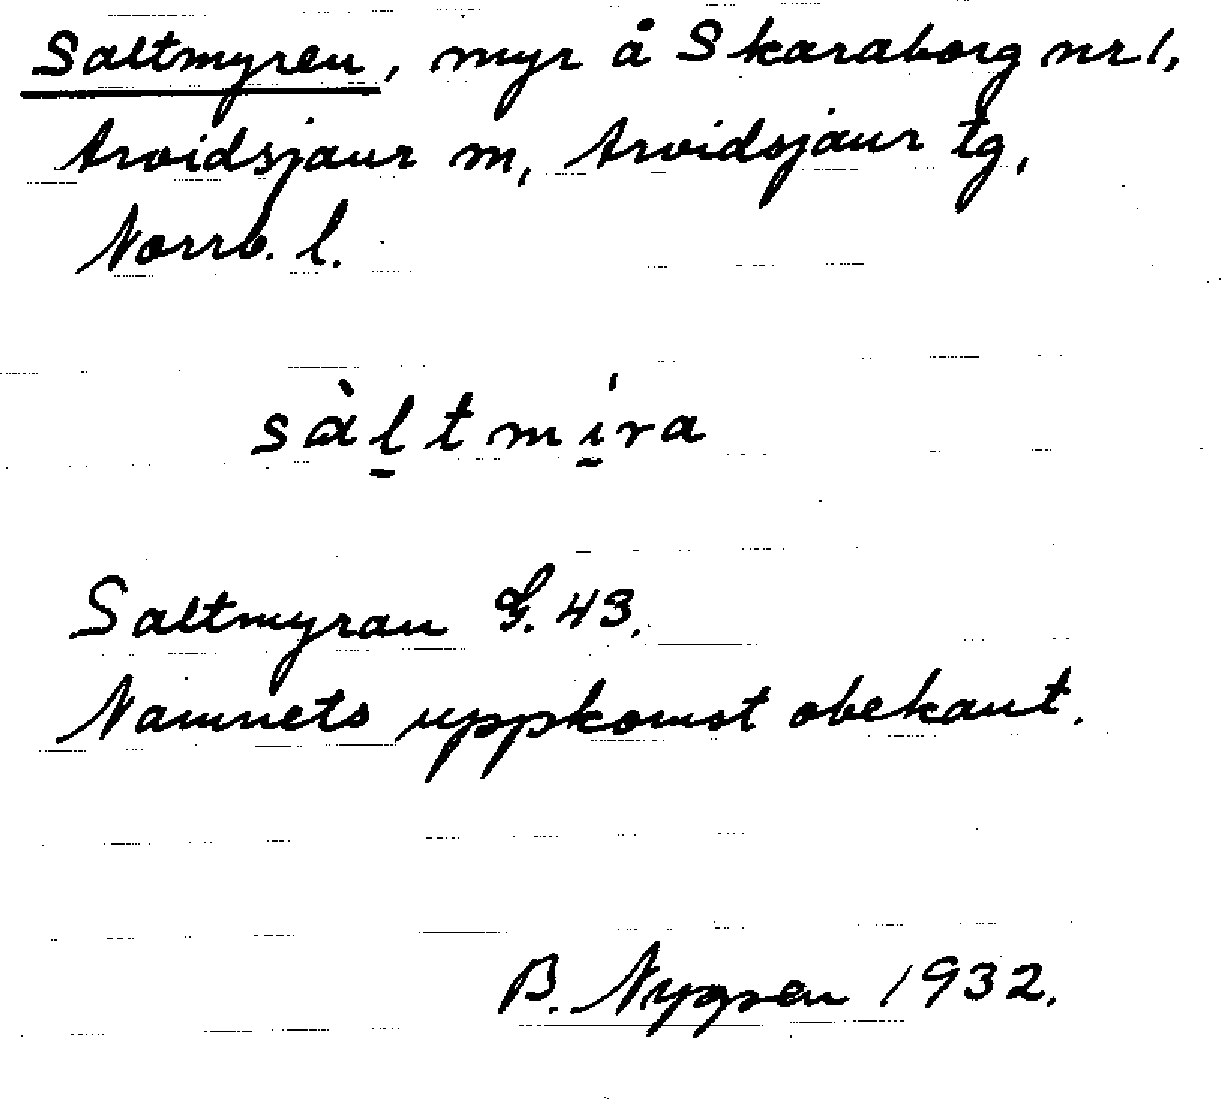 Saltmyren, myr å Skaraborg nr 1,
Arvidsjaur m, Arvidsjaur tg,
Norrb. l.
sàl̠tmi̠ˈra
Saltmyran G. 43.
Namnets uppkomst obekant.
B. Nygren 1932.